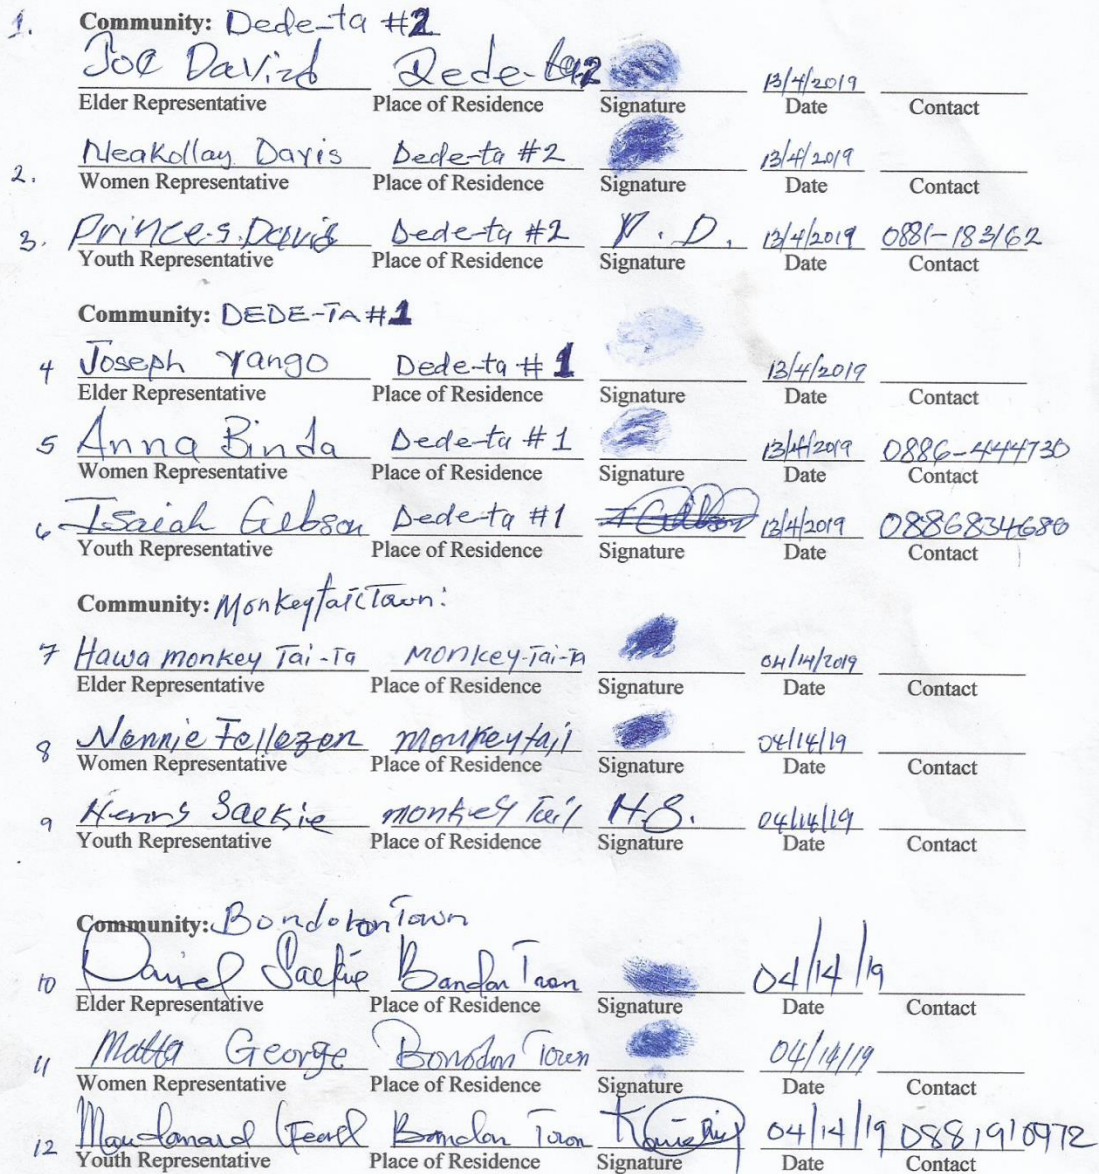 1. Community: Dede-ta #2
Joe David Dede-ta 2 13/4/2019
Elder Representative Place of Residence Signature Date Contact
Neakollay Davis Dede-ta #2 13/4/2019
2. Women Representative Place of Residence Signature Date Contact
3. Prince.S.Davis Dede-ta #2 P.D. 13/4/2019 0881-183162
Youth Representative Place of Residence Signature Date Contact
Community: DEDE-TA #1
4 Joseph Yango Dede-ta #1 13/4/2019
Elder Representative Place of Residence Signature Date Contact
5 Anna Binda Dede-ta #1 13/4/2019 0886-444730
Women Representative Place of Residence Signature Date Contact
6 Isaiah Gebson Dede-ta #1 13/4/2019 0886834680
Youth Representative Place of Residence Signature Date Contact
Community: Monkeytail Town:
7 Hawa monkey Tai-Ta monkey-Tai-Ta 04/14/2019
Elder Representative Place of Residence Signature Date Contact
8 Nennie monkeytail 04/14/19
Women Representative Place of Residence Signature Date Contact
9 Henry Saekie monkey Tail H.S. 04/14/19
Youth Representative Place of Residence Signature Date Contact
Community: Town
10 Daniel Saekie Town 04/14/19
Elder Representative Place of Residence Signature Date Contact
11 Matta George Town 04/14/19
Women Representative Place of Residence Signature Date Contact
12 Town 04/14/19 0881910972
Youth Representative Place of Residence Signature Date Contact